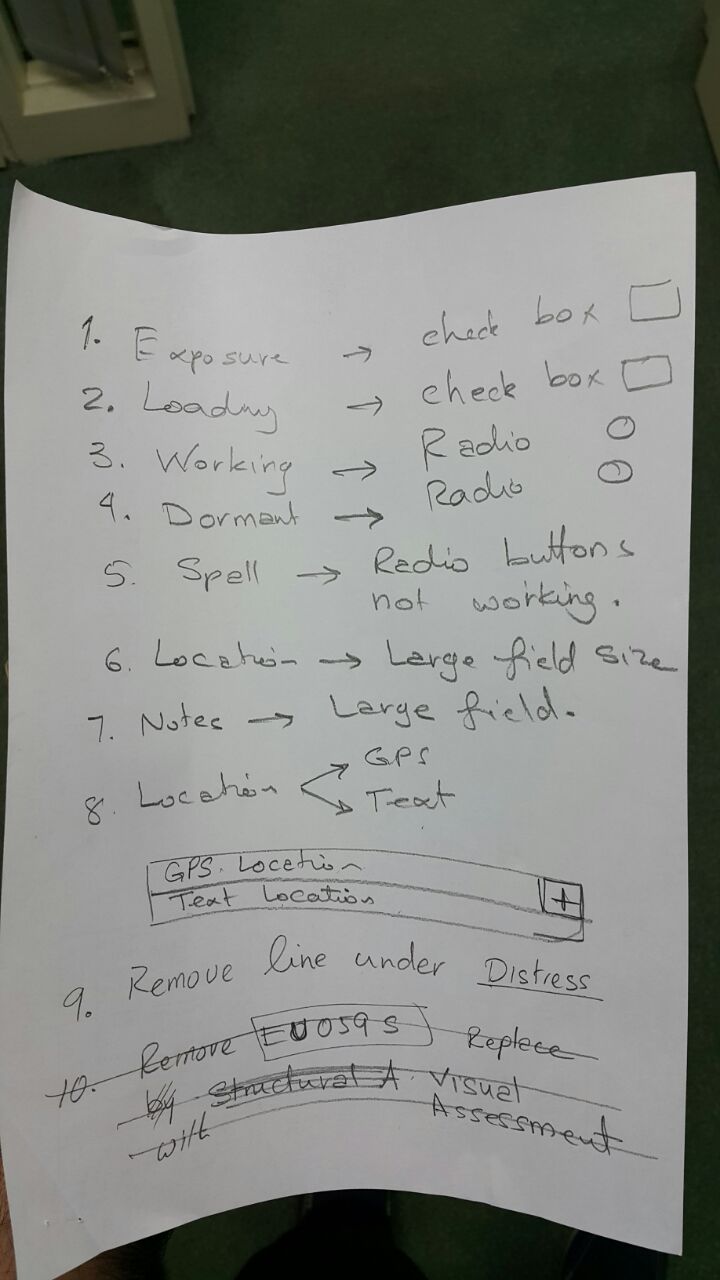 1. Exposure → check box
2. Loading → check box
3. Working → Radio
4. Dormant → Radio
5. Spall → Radio buttons
not working.
6. Location → Large field size
7. Notes → Large field.
8. Location GPS
Text
GPS. Location
Text Location +
9. Remove line under Distress
10. Remove EU059S Replace
by Structural A. Visual
with Assessment